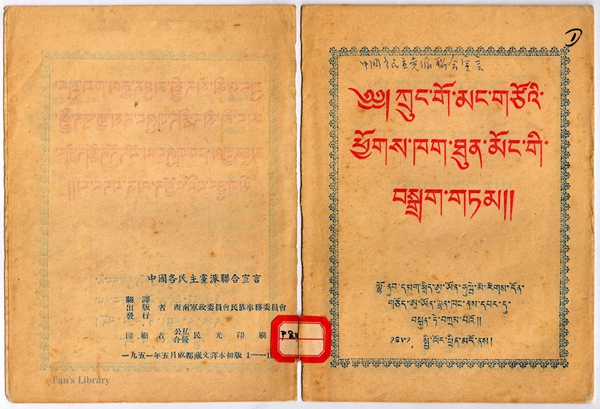 中國各民主黨派聯合宣言
翻譯
出版者 西南軍政委員會民族事務委員會
發行
印刷者 公私合營 民光印刷
一九五一年五月成都藏文譯本初版 1—1
Fan's Library
中国各民主党派联合宣言
༄༅། ཀྲུང་གོ་མང་གཙོའི་
ཕྱོགས་ཁག་ཐུན་མོང་གི་
བསྒྲག་གཏམ།།
ལྷོ་ནུབ་དམག་སྲིད་ཨུ་ཡོན་ མི་རིགས་དོན་
གཅོད་ཨུ་ཡོན་ལྷན་ཁང་ནས་དཔར་དུ་
བསྐྲུན་ཏེ་བཀྲམ་པའོ།།
༡༩༥༡